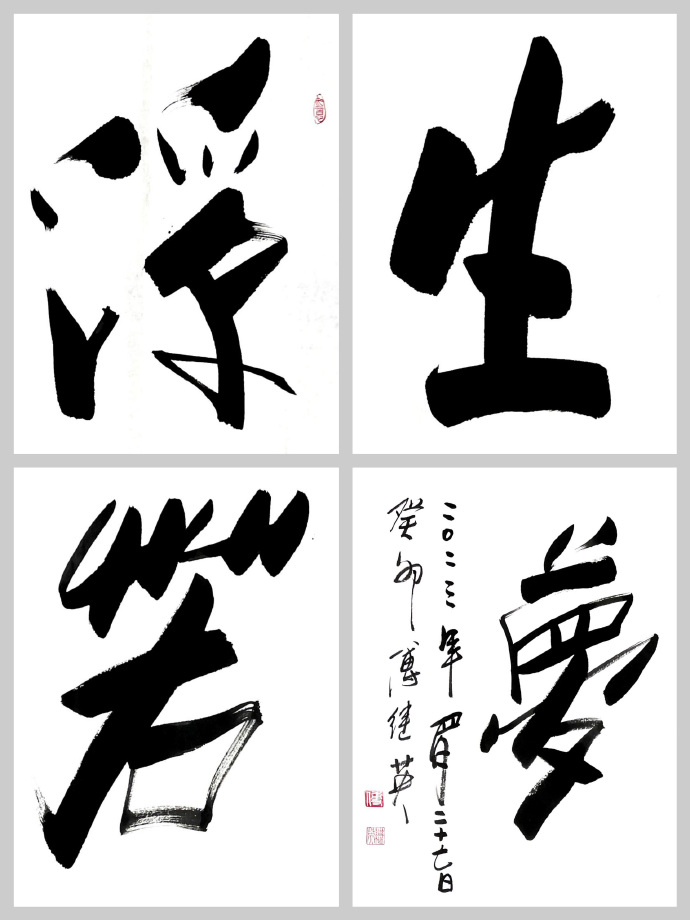 浮
生
若
夢
二〇二三年四月二十七日
癸卯傅继英